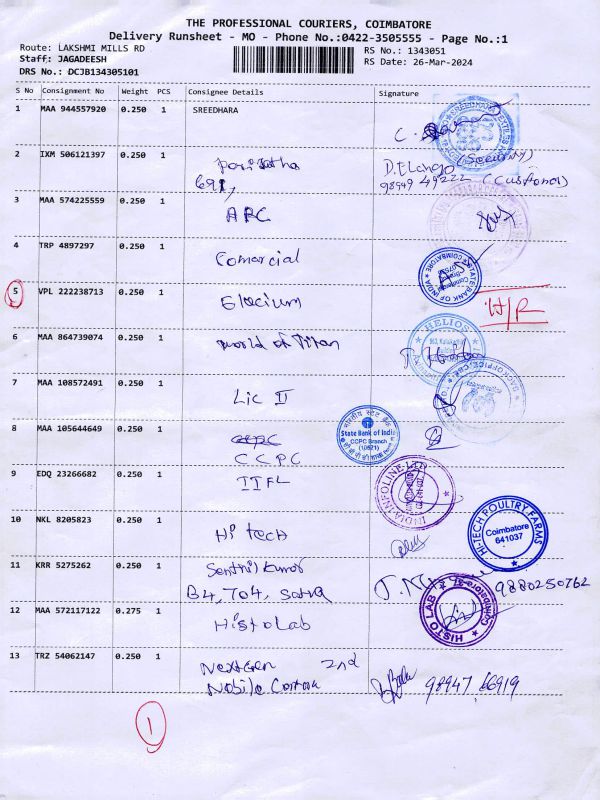 THE PROFESSIONAL COURIERS, COIMBATORE
Delivery Runsheet - MO - Phone No.:0422-3505555 - Page No.:1
Route: LAKSHMI MILLS RD
Staff: JAGADEESH
DRS No.: DCJB134305101
RS No.: 1343051
RS Date: 26-Mar-2024
S No Consignment No Weight PCS Consignee Details Signature
1 MAA 944557920 0.250 1 SREEDHARA
2 IXM 506121397 0.250 1
691,
D.Elango (Security)
98949 49222 (Customer)
3 MAA 574225559 0.250 1 ARC
4 TRP 4897297 0.250 1 Comarcial
STATE BANK OF INDIA
COIMBATORE
5 VPL 222238713 0.250 1 Glacium H/R
6 MAA 864739074 0.250 1 World of Titan
HELIOS
7 MAA 108572491 0.250 1 Lic II
8 MAA 105644649 0.250 1
CCPC
भारतीय स्टेट बैंक
State Bank of India
CCPC Branch
(10521)
9 EDQ 23266682 0.250 1 IIFL
INDIA INFOLINE LTD
10 NKL 8205823 0.250 1 Hi tech
HI-TECH POULTRY FARMS
Coimbatore
641037
11 KRR 5275262 0.250 1 Senthil kumar
B4, 704, Satva
9880250762
12 MAA 572117122 0.275 1 Histo Lab
HISTO LAB
Coimbatore
13 TRZ 54062147 0.250 1 Nextgen 2nd
Mobile
98947 66919
1